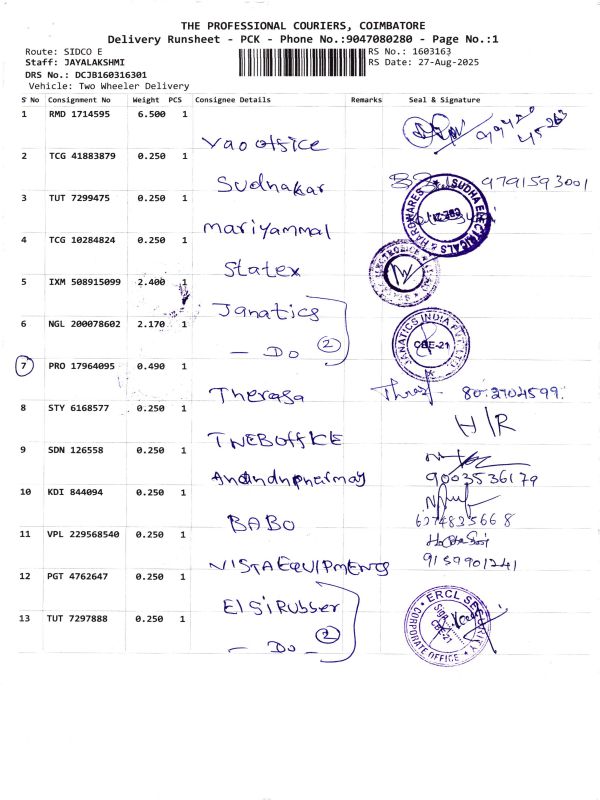 THE PROFESSIONAL COURIERS, COIMBATORE
Delivery Runsheet - PCK - Phone No.:9047080280 - Page No.:1
Route: SIDCO E
RS No.: 1603163
Staff: JAYALAKSHMI
RS Date: 27-Aug-2025
DRS No.: DCJB160316301
Vehicle: Two Wheeler Delivery
S No Consignment No Weight PCS Consignee Details Remarks Seal & Signature
1 RMD 1714595 6.500 1
Vao office
2 TCG 41883879 0.250 1
Sudhakar 9791593001
3 TUT 7299475 0.250 1
SUDHA ELECTRICALS & HARDWARES
mariyammal
4 TCG 10284824 0.250 1
Statex
5 IXM 508915099 2.400 1
Janatics
6 NGL 200078602 2.170 1
JANATICS INDIA PVT LTD
CBE-21
- Do 2
7 PRO 17964095 0.490 1
Therasa
8 STY 6168577 0.250 1
H/R
TNEB office
9 SDN 126558 0.250 1
9003536179
10 KDI 844094 0.250 1
BABO 6374835668
11 VPL 229568540 0.250 1
VISTA EQUIPMENTS 9159901241
12 PGT 4762647 0.250 1
Elsi Rubber
13 TUT 7297888 0.250 1
ERCL SECURITY
CBE-21
CORPORATE OFFICE
- Do - 2